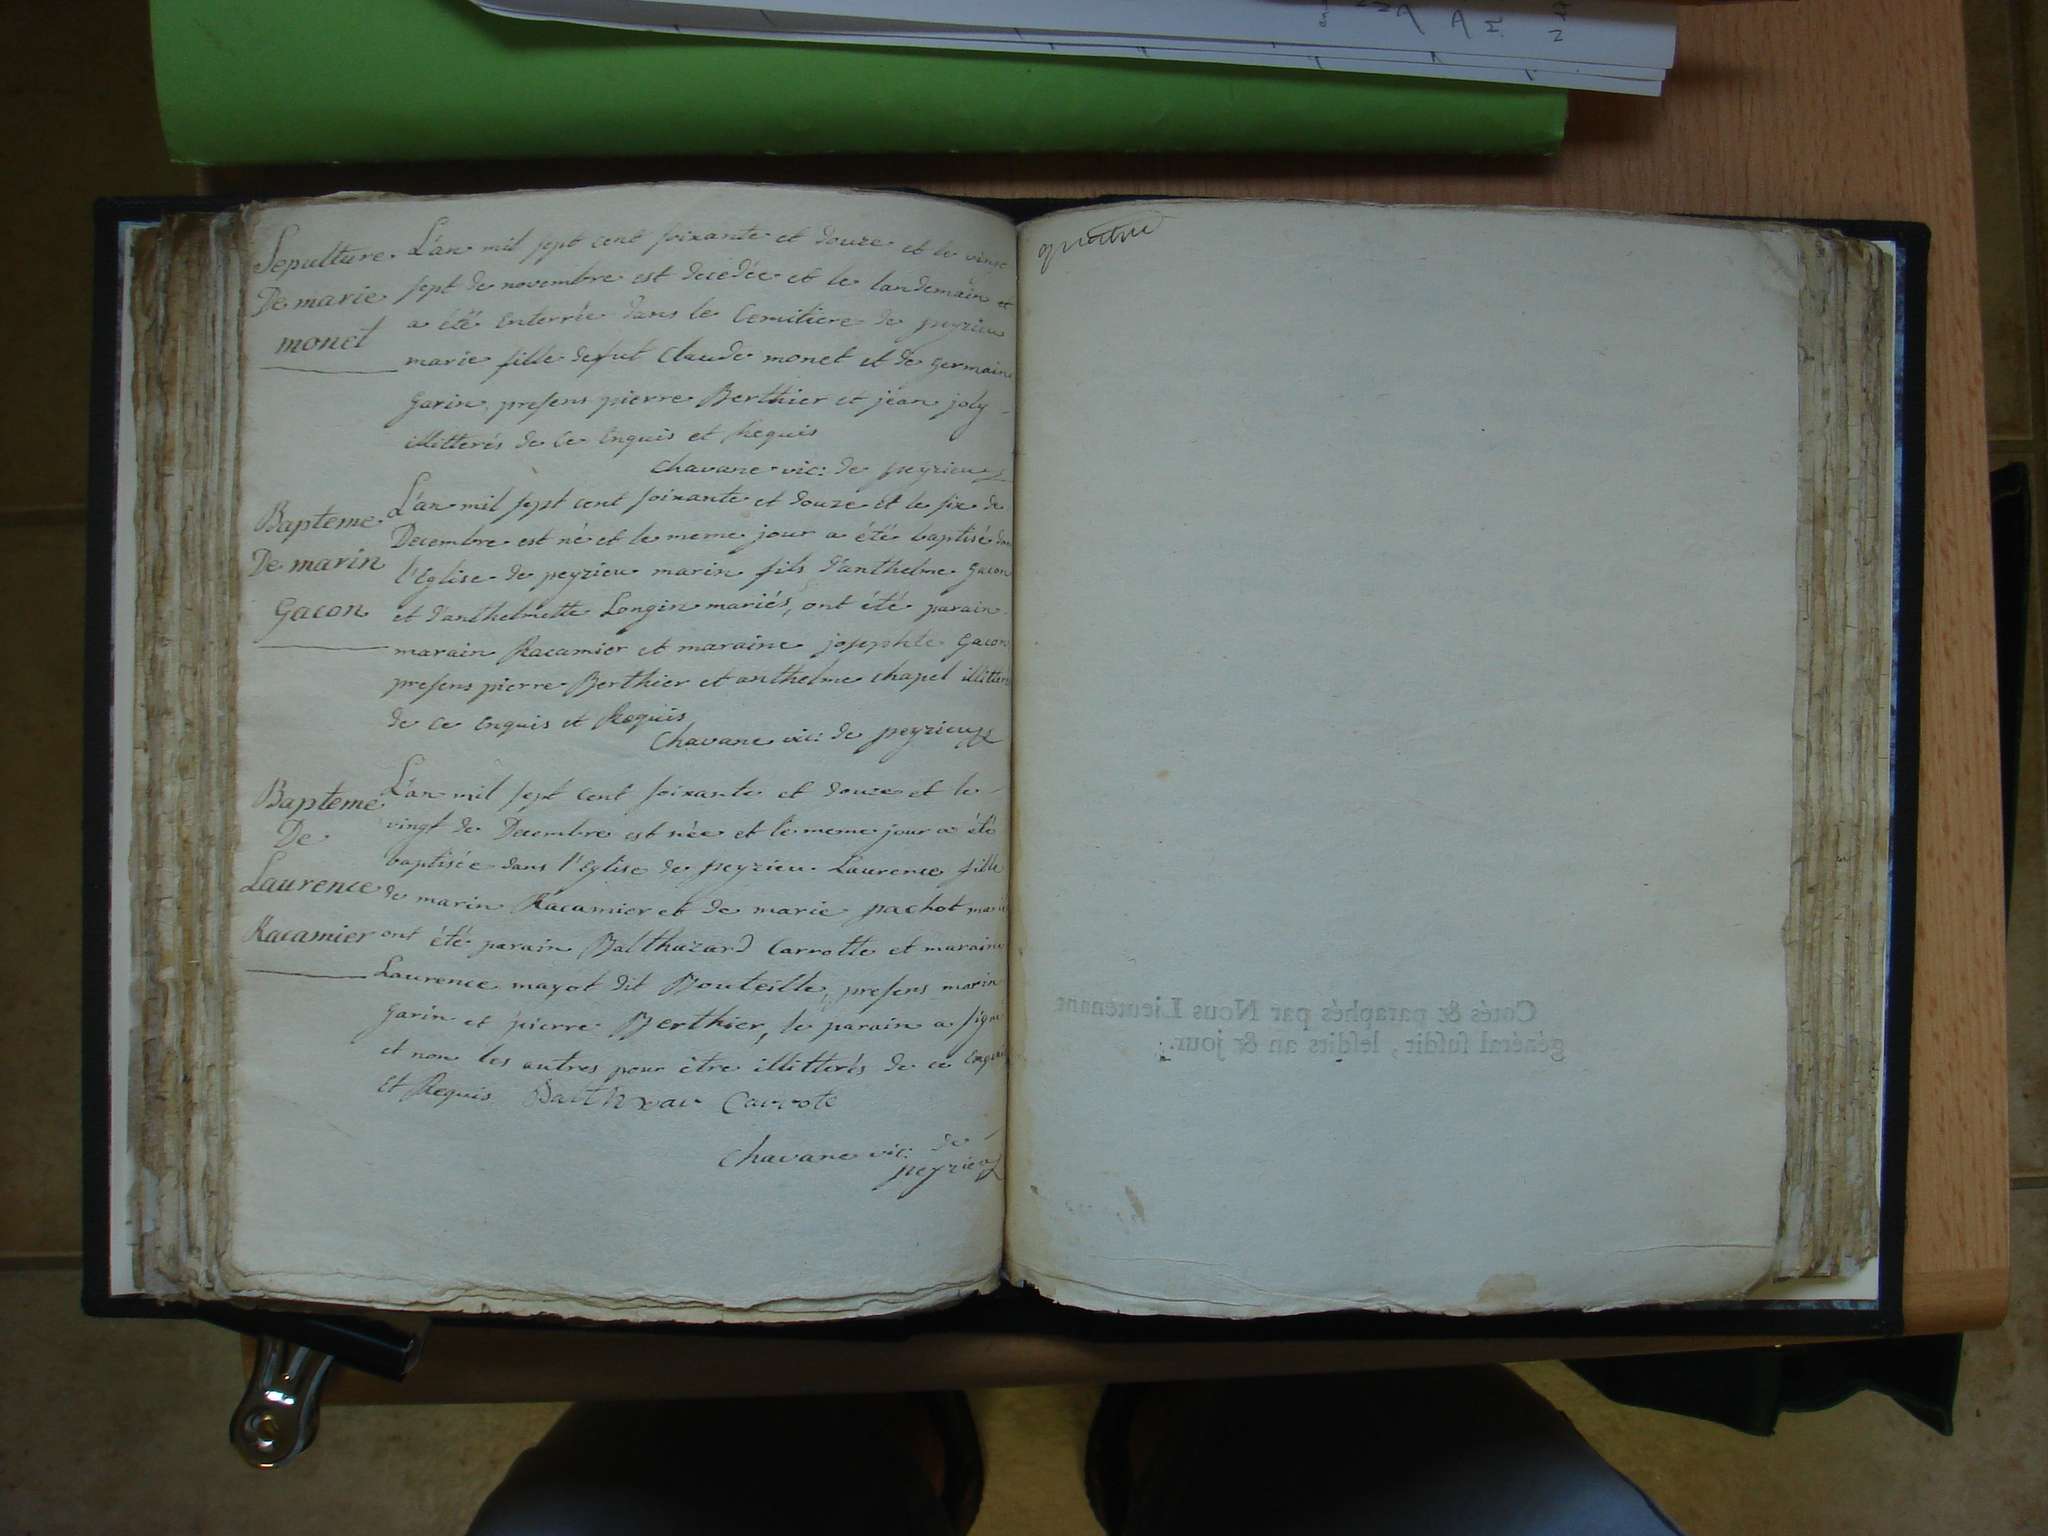 Sepulture
De marie
monet
L'an mil sept cent soixante et douze et le vingt
sept de novembre est decedée et le landemain et
a été enterrée dans le Cemitiere de peyzieu
marie fille defut Claude monet et de germaine
garin, presens pierre Berthier et jean joly
illitterés de ce enquis et Requis
Chavane vic: de peyzieu
Bapteme
De marin
Gacon
L'an mil sept cent soixante et douze et le six de
Decembre est né et le meme jour a été baptisé dans
l'Eglise de peyzieu marin fils d'anthelme Gacon
et d'anthelmette Longin mariés, ont été parain
marain Racamier et maraine josephte Gacon
presens pierre Berthier et anthelme chapel illitterés
de ce enquis et Requis
Chavane vic: de peyzieu
Bapteme
De
Laurence
Racamier
L'an mil sept cent soixante et douze et le
vingt de Decembre est née et le meme jour a été
baptisée dans l'Eglise de peyzieu Laurence fille
de marin Racamier et de marie pachot mariés
ont été parain Balthazard Carrotte et maraine
Laurence mayot dit Bouteille, presens marin
garin et pierre Berthier, le parain a signé
et non les autres pour être illitterés de ce enquis
et Requis Balthzar Carrote
Chavane vic: de
peyzieu
quatre
Cotés & paraphés par Nous Lieutenant
général susdit, lesdits an & jour.